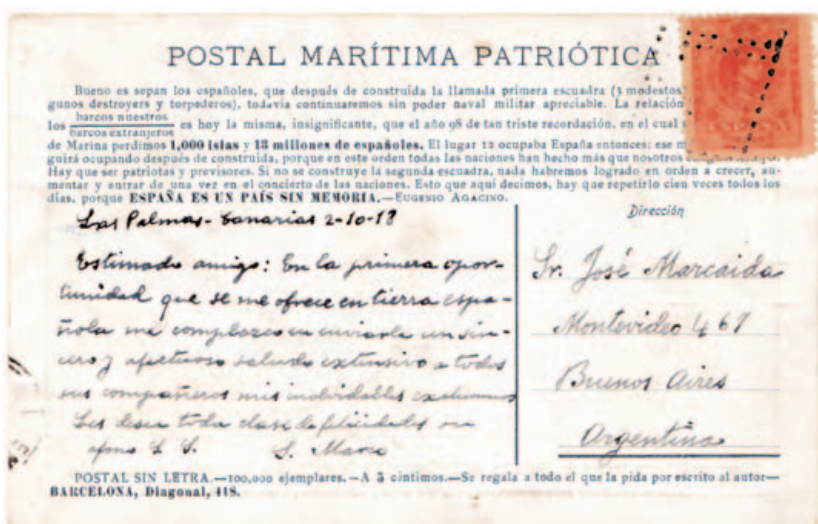 POSTAL MARÍTIMA PATRIÓTICA
Bueno es sepan los españoles, que después de construída la llamada primera escuadra (3 modestos
gunos destroyers y torpederos), todavía continuaremos sin poder naval militar apreciable. La relación
los barcos nuestros
barcos extranjeros es hoy la misma, insignificante, que el año 98 de tan triste recordación, en el cual
de Marina perdimos 1,000 islas y 18 millones de españoles. El lugar 12 ocupaba España entonces: ese m
guirá ocupando después de construída, porque en este orden todas las naciones han hecho más que nosotros
Hay que ser patriotas y previsores. Si no se construye la segunda escuadra, nada habremos logrado en orden a crecer, au-
mentar y entrar de una vez en el concierto de las naciones. Esto que aquí decimos, hay que repetirlo cien veces todos los
días, porque ESPAÑA ES UN PAÍS SIN MEMORIA.—EUGENIO AGACINO.
Las Palmas-Canarias 2-10-18
Dirección
Estimado amigo: En la primera opor-
tunidad que se me ofrece en tierra espa-
ñola me complazco en enviarle un sin-
cero y afectuoso saludo extensivo a todos
sus compañeros mis inolvidables
Les desea toda clase de felicidades su
afmo S. S. S. Marco
Sr. José Marcaida
Montevideo 467
Buenos Aires
Argentina
POSTAL SIN LETRA.—100,000 ejemplares.—A 5 céntimos.—Se regala a todo el que la pida por escrito al autor—
BARCELONA, Diagonal, 418.